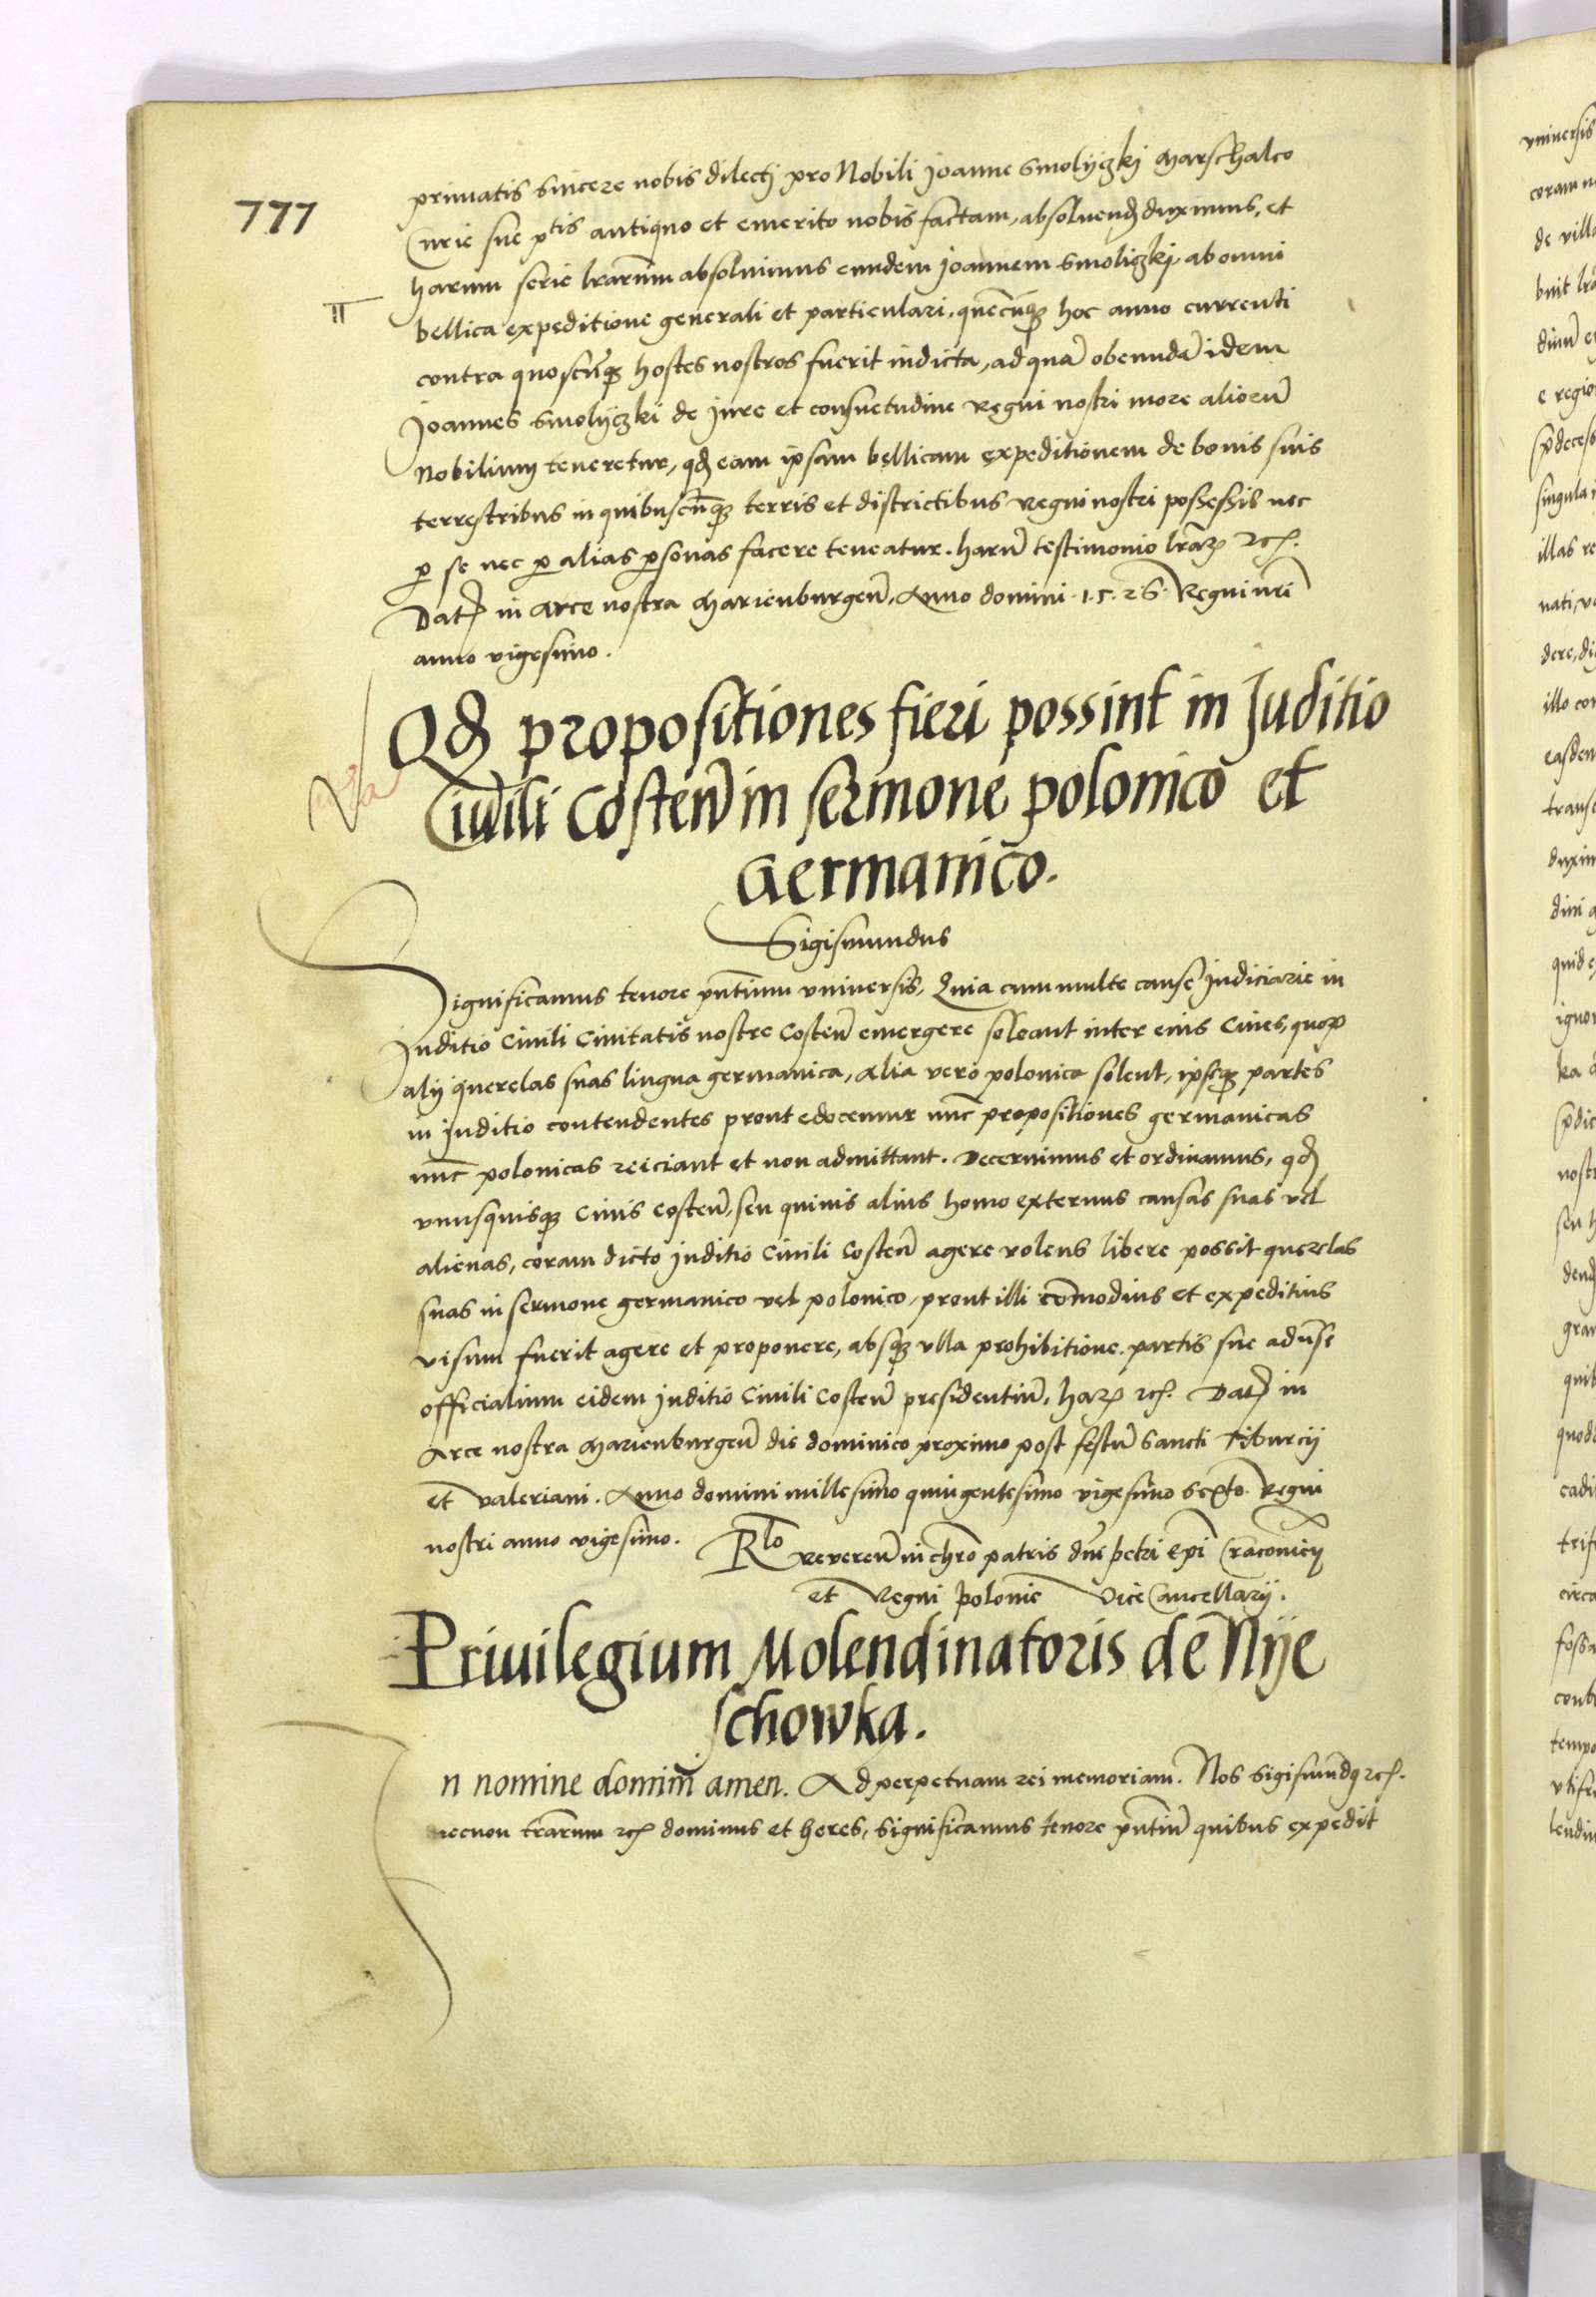 777
primatis sincere nobis dilecti pro Nobili Joanne Smolijczkj Marschalco
Curie sue ptis antiquo et emerito nobis factam, absoluend duximus, et
harum serie lrarum absoluimus eundem Joannem Smoliczkj ab omni
II
bellica expeditione generali et particulari, quecunqz hoc anno currenti
contra quoscunqz hostes nostros fuerit indicta, ad qua obeunda idem
Joannes Smolijczki de Jure et consuetudine Regni nostri more alioru
Nobilium teneretur, qd eam ipsam bellicam expeditionem de bonis suis
terrestribus in quibuscunqz terris et districtibus Regni nostri possessis nec
p se nec p alias psonas facere teneatur. haru testimonio lrar etc.
Dat in Arce nostra Marienburgen, Anno domini .1.5.26. Regni nri
anno vigesimo.
Qd propositiones fieri possint in Juditio
Ciuili Costen in sermone polonico et
Germanico.
Sigismundus
Significamus tenore pntium vniuersis, Quia cum multe cause Judiciarie in
Juditio Ciuili Ciuitatis nostre Costen emergere soleant inter eius Ciues, quor
alij querelas suas lingua germanica, Alia vero polonica solent, ipseqz partes
in Juditio contendentes prout edocemur nunc propositiones germanicas
nunc polonicas reiciant et non admittant. Decernimus et ordinamus, qd
vnusquisqz Ciuis Costen, seu quiuis alius homo externus causas suas vel
alienas, coram dicto Juditio Ciuili Costen agere volens libere possit querelas
suas in sermone germanico vel polonico, prout illi commodius et expeditius
visum fuerit agere et proponere, absqz vlla prohibitione partis sue aduse
officialium eidem Juditio Ciuili Costen presidentiu, har etc. Dat in
Arce nostra Marienburgen die dominico proximo post festu Sancti Tiburcij
et Valeriani. Anno domini millesimo quingentesimo vigesimo Sexto. Regni
nostri anno vigesimo. Rlo Reueren in chro patris dni petri Epi Cracouien
et Regni polonie Vice Cancellarij.
Priuilegium Molendinatoris de Nije
schowka.
n nomine domini amen. Ad perpetuam rei memoriam. Nos Sigismundq etc.
necnon trarum etc dominus et heres, significamus tenore pntiu quibus expedit